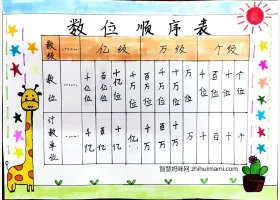 数位顺序表
数级 …… 亿级 万级 个级
数位 …… 千亿位 百亿位 十亿位 亿位 千万位 百万位 十万位 万位 千位 百位 十位 个位
计数单位 …… 千亿 百亿 十亿 亿 千万 百万 十万 万 千 百 十 个
智慧妈咪网 zhihuimami.com